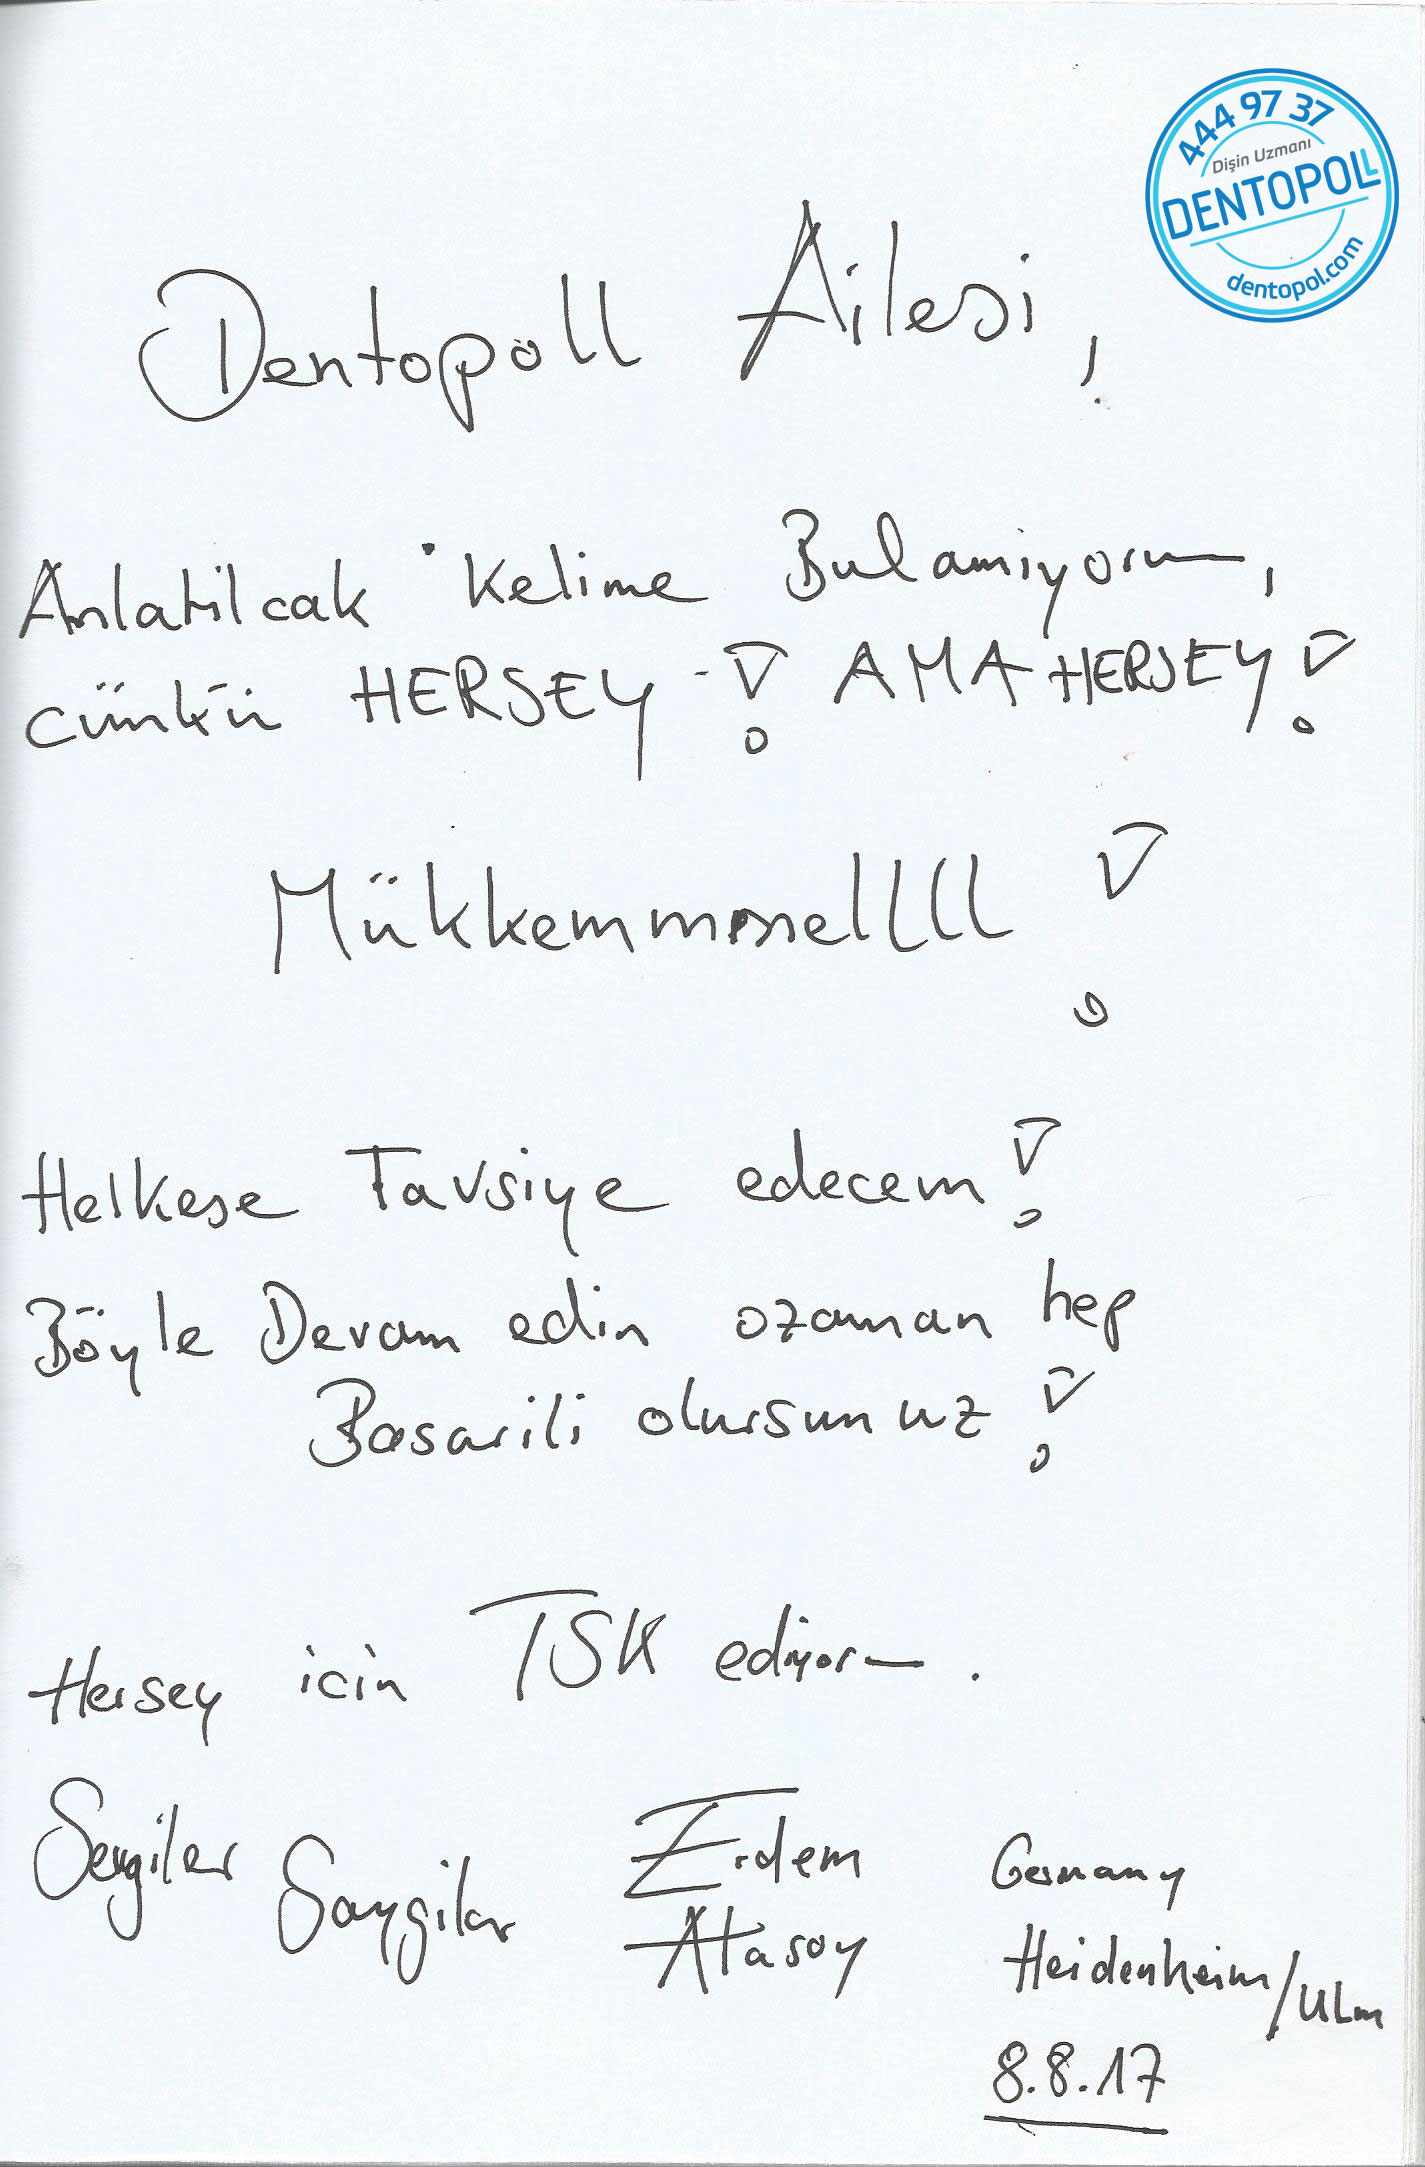 444 97 37
Dişin Uzmanı
DENTOPOLL
dentopol.com
Dentopoll Ailesi,
Anlatilcak Kelime Bulamiyorum,
cünkü HERSEY ! AMA HERSEY !
Mükkemmmellll !
Herkese Tavsiye edecem !
Böyle Devam edin ozaman hep
Basarili olursunuz !
Hersey icin TSK ediyorum.
Sevgiler Saygilar Erdem Atasoy
Germany
Heidenheim/Ulm
8.8.17